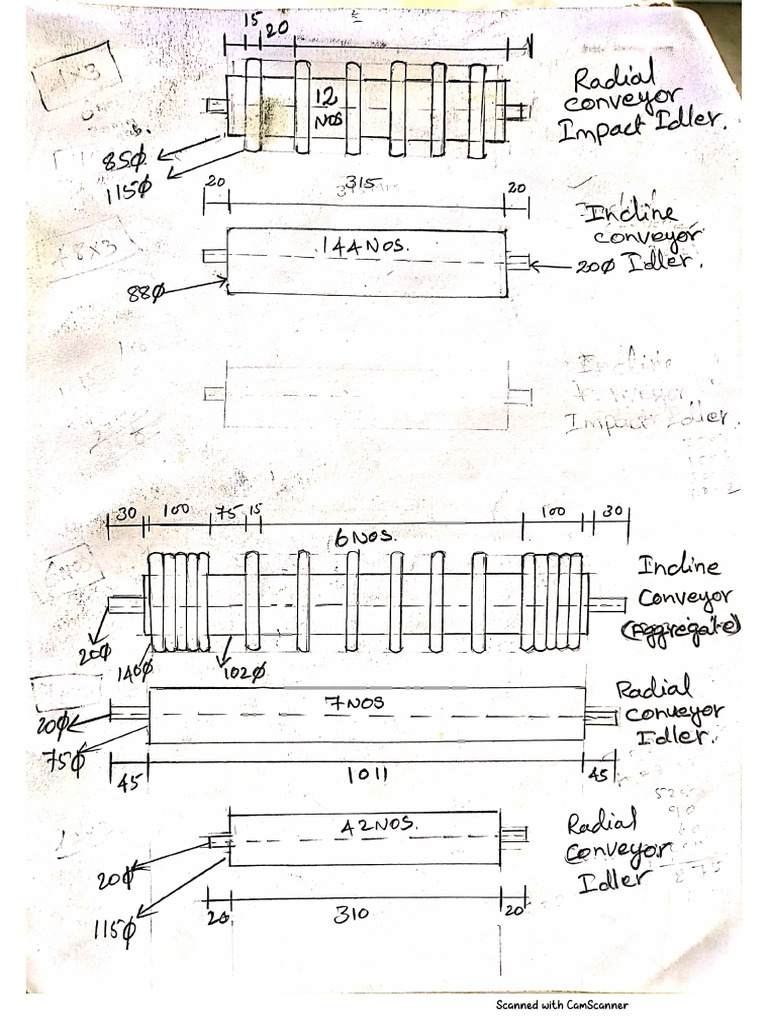 15
20
4x3
12
NOS
Radial
conveyor
Impact Idler.
85Ø
115Ø
20
315
20
48x3
144NOS.
Incline
conveyor
20Ø Idler.
88Ø
Incline
Impact Idler.
30
100
75
15
6NOS.
100
30
Incline
Conveyor
(Aggregate)
20Ø
140Ø
102Ø
7NOS
Radial
conveyor
Idler.
20Ø
75Ø
45
1011
45
42NOS.
Radial
Conveyor
Idler
20Ø
115Ø
20
310
20
Scanned with CamScanner